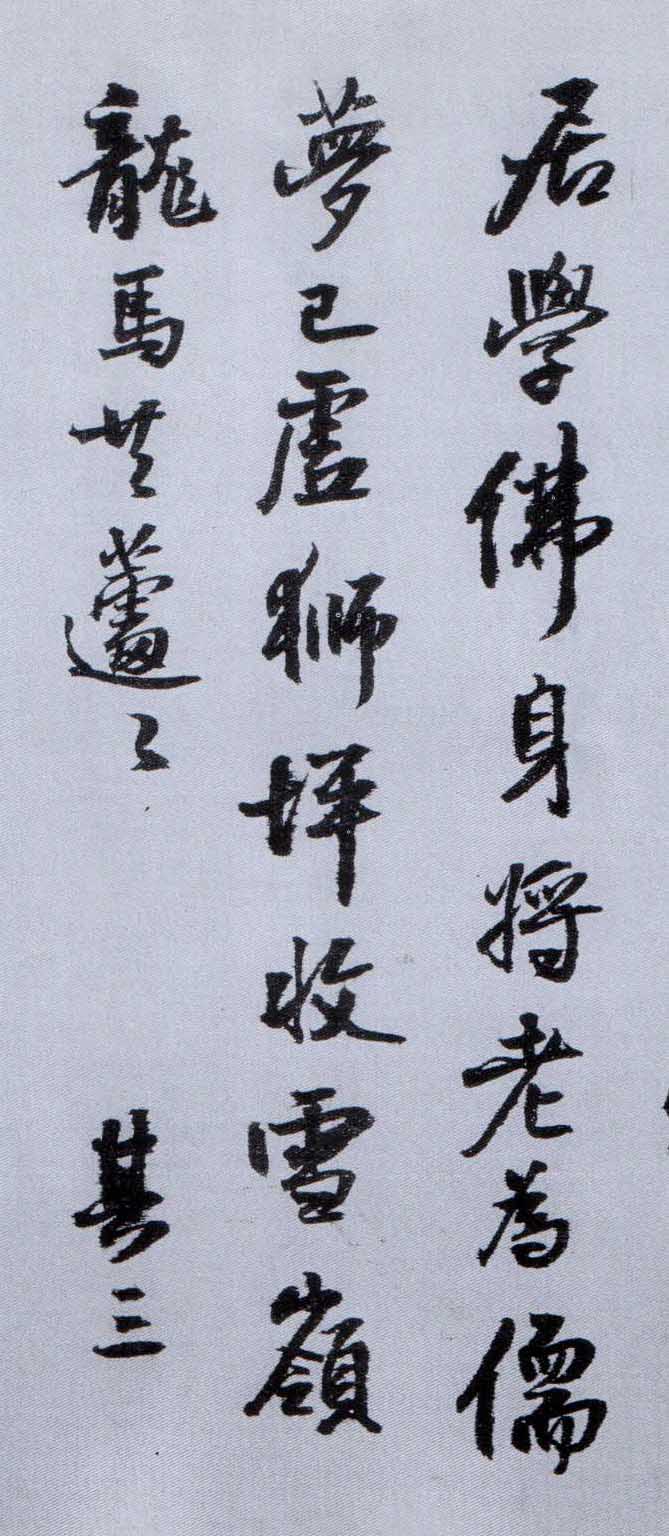 居學佛身將老為儒
夢已虛獅坪收雪嶺
龍馬共蘧々 其三